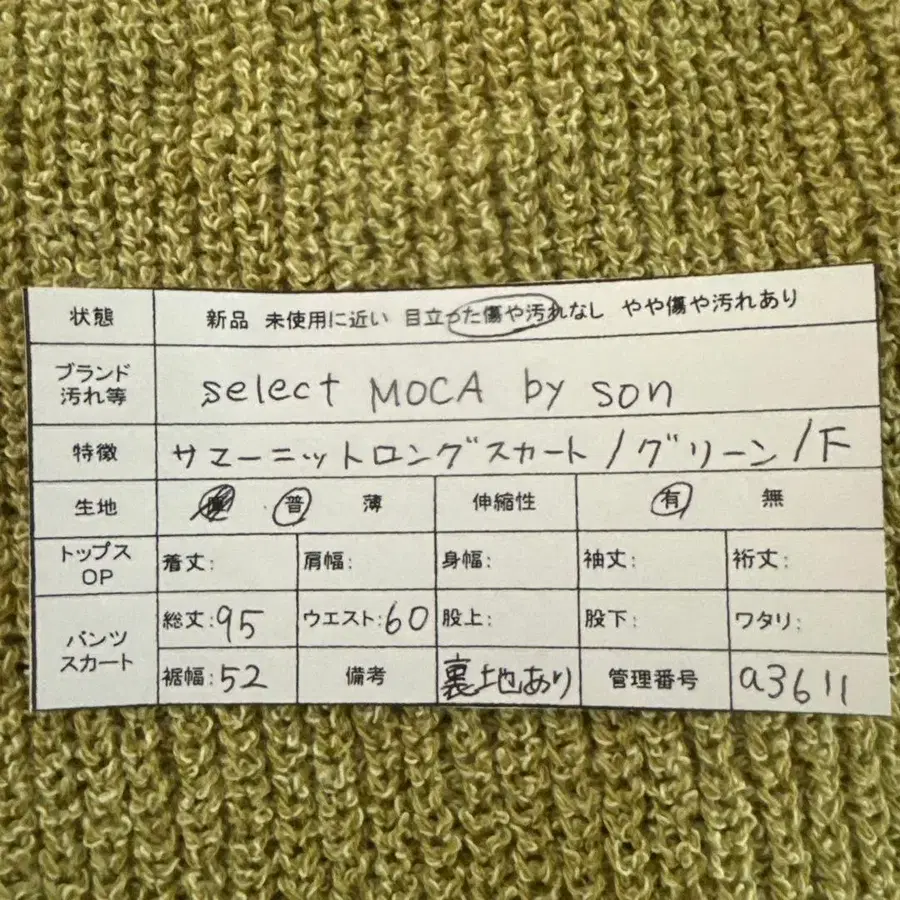 状態 新品 未使用に近い 目立った傷や汚れなし やや傷や汚れあり
ブランド
汚れ等 select MOCA by son
特徴 サマーニットロングスカート/グリーン/下
生地 普 薄 伸縮性 有 無
トップス
OP 着丈: 肩幅: 身幅: 袖丈: 裄丈:
パンツ
スカート 総丈:95 ウエスト:60 股上: 股下: ワタリ:
裾幅:52 備考 裏地あり 管理番号 a3611